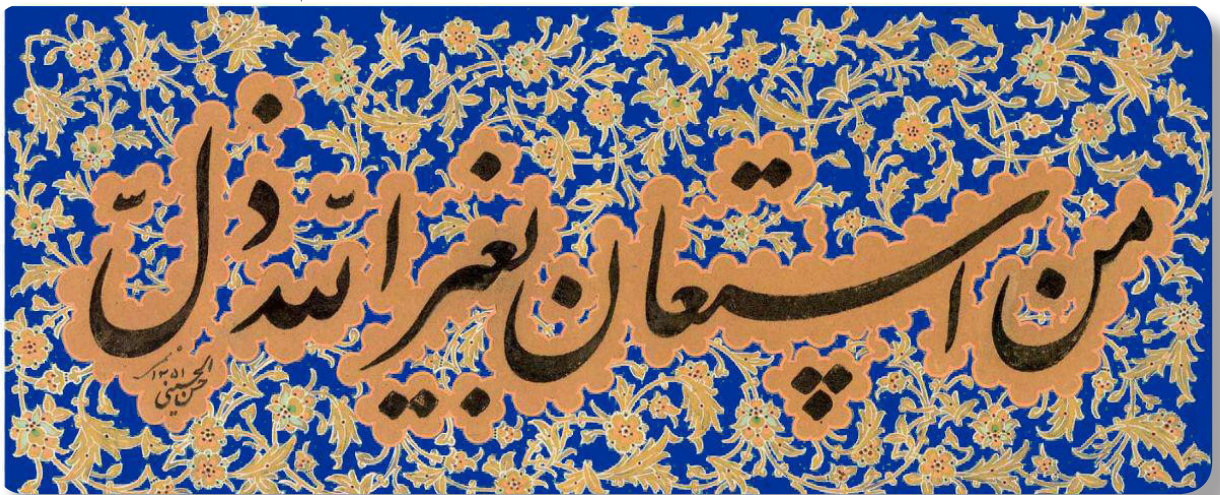 من استعان بغیر الله ذلّ
حسن الحسینی
۱۳۵۱